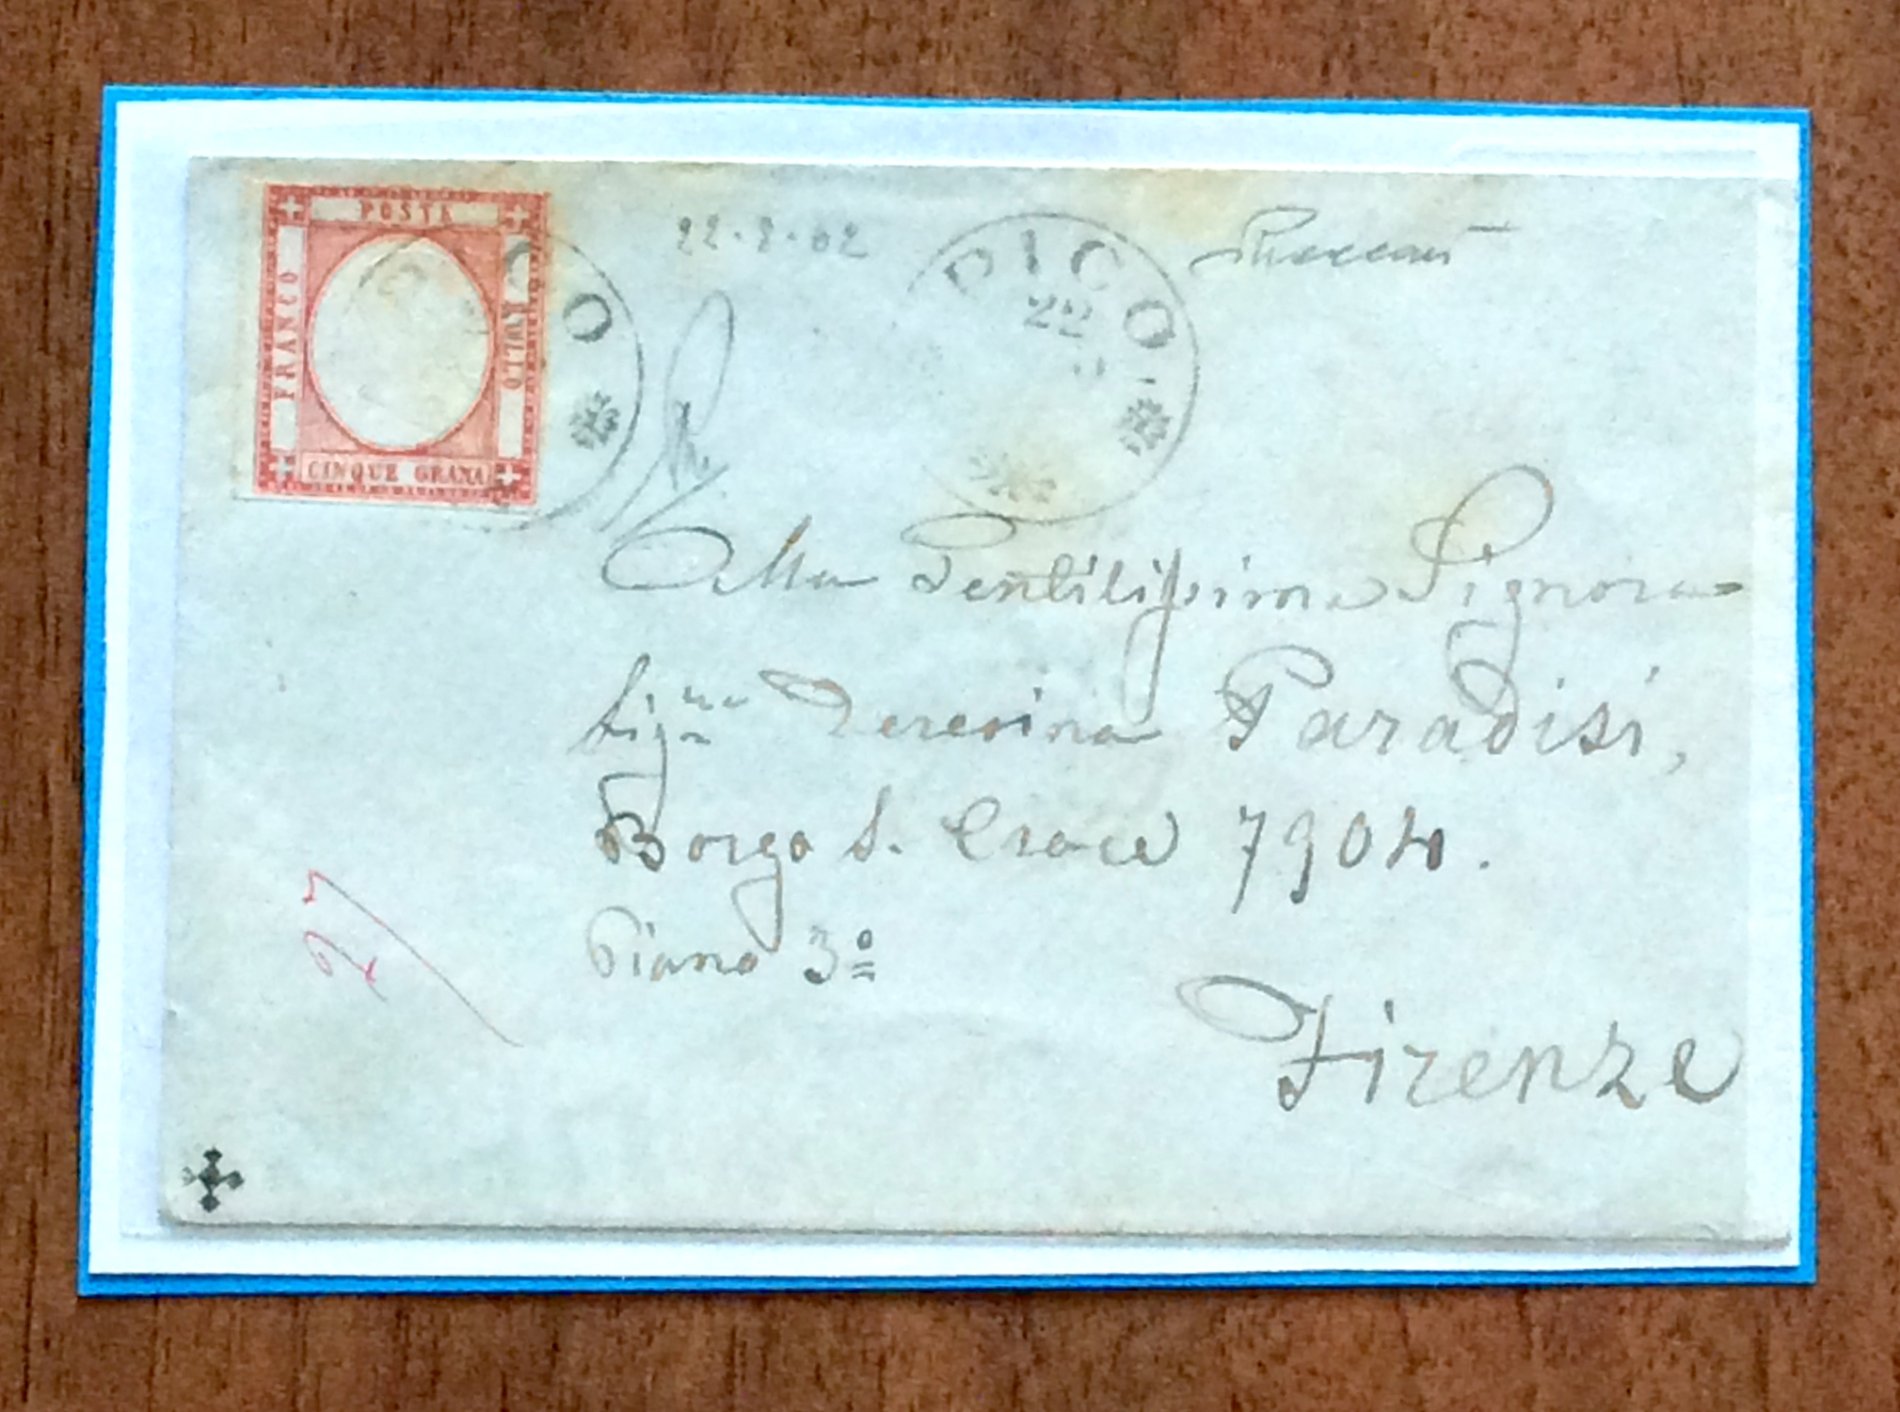 POSTE
FRANCO
BOLLO
CINQUE GRANA
22
PICO
22
Alla Gentilissima Signora
Sig.ra Teresina Paradisi,
Borgo S. Croce 7904.
Piano 3º
Firenze